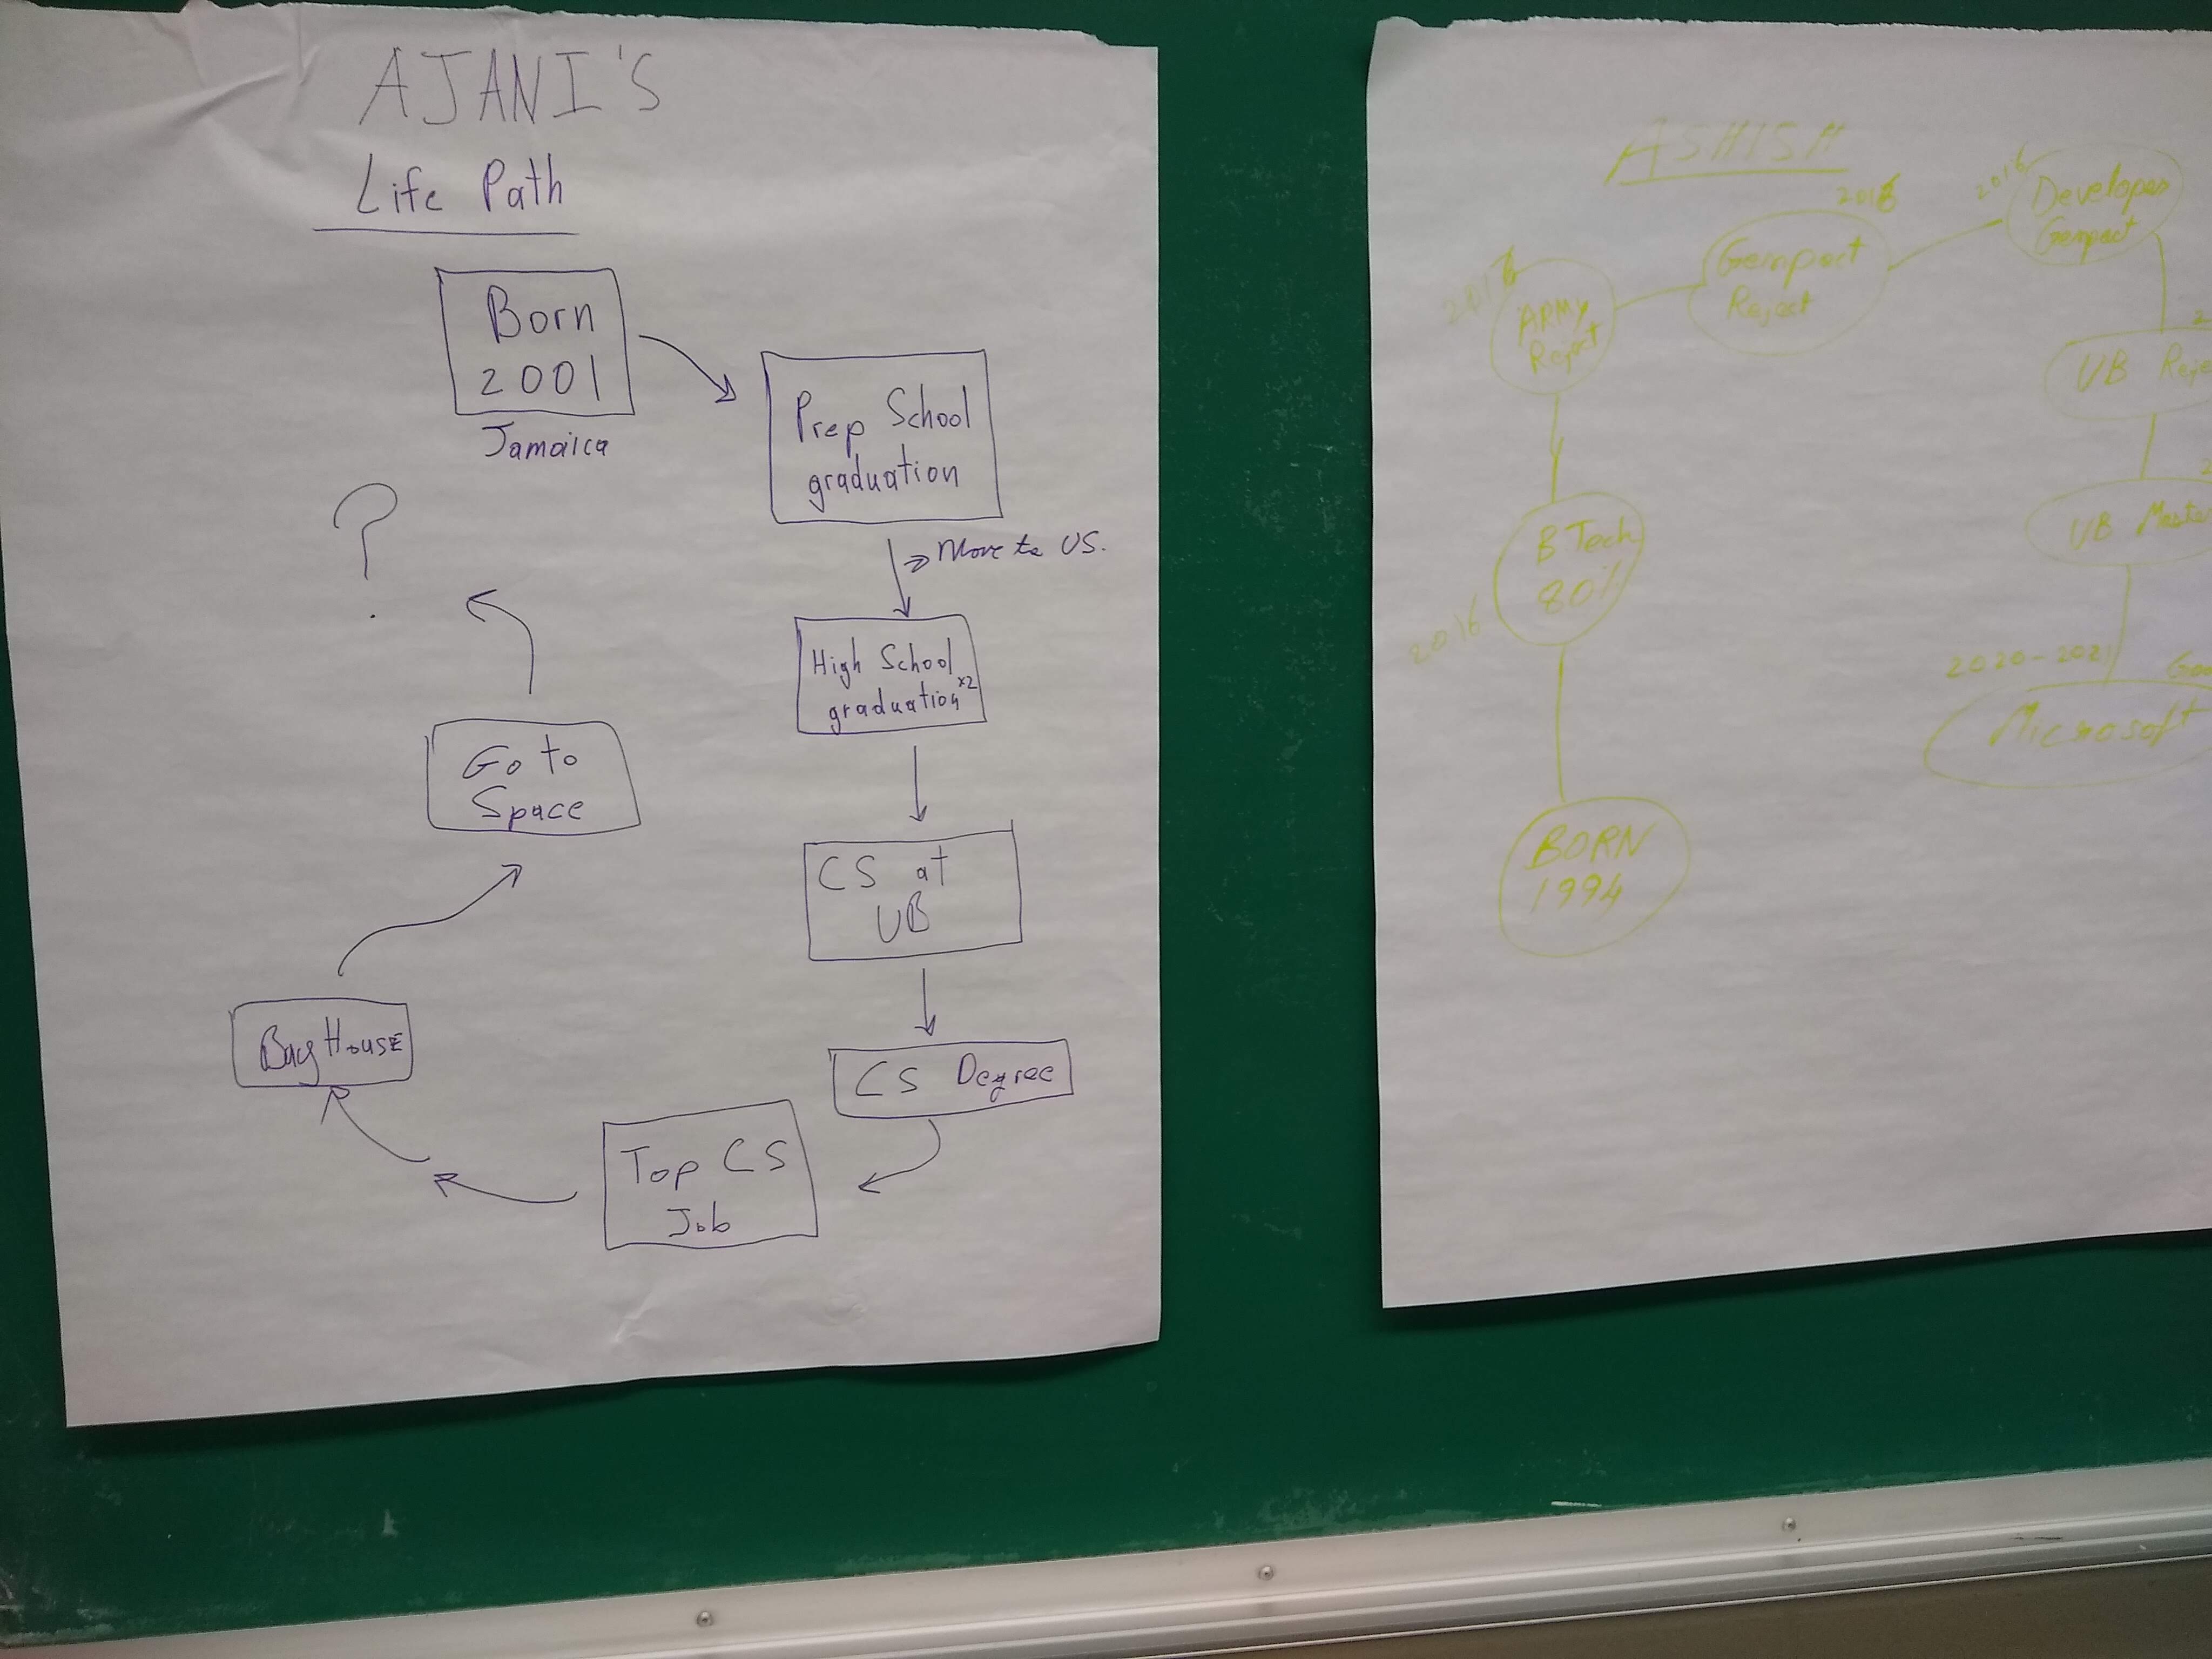 AJANI'S
Life Path
Born
2001
Jamaica
Prep School
graduation
Move to US.
High School
graduation x2
CS at
UB
CS Degree
Top CS
Job
Buy House
Go to
Space
?
ASHISH
BORN
1994
2016
B Tech
80%
ARMY
Reject
Genpact
Reject
2016
Developer
Genpact
UB Reje
UB Maste
2020-2021
Goo
Microsoft